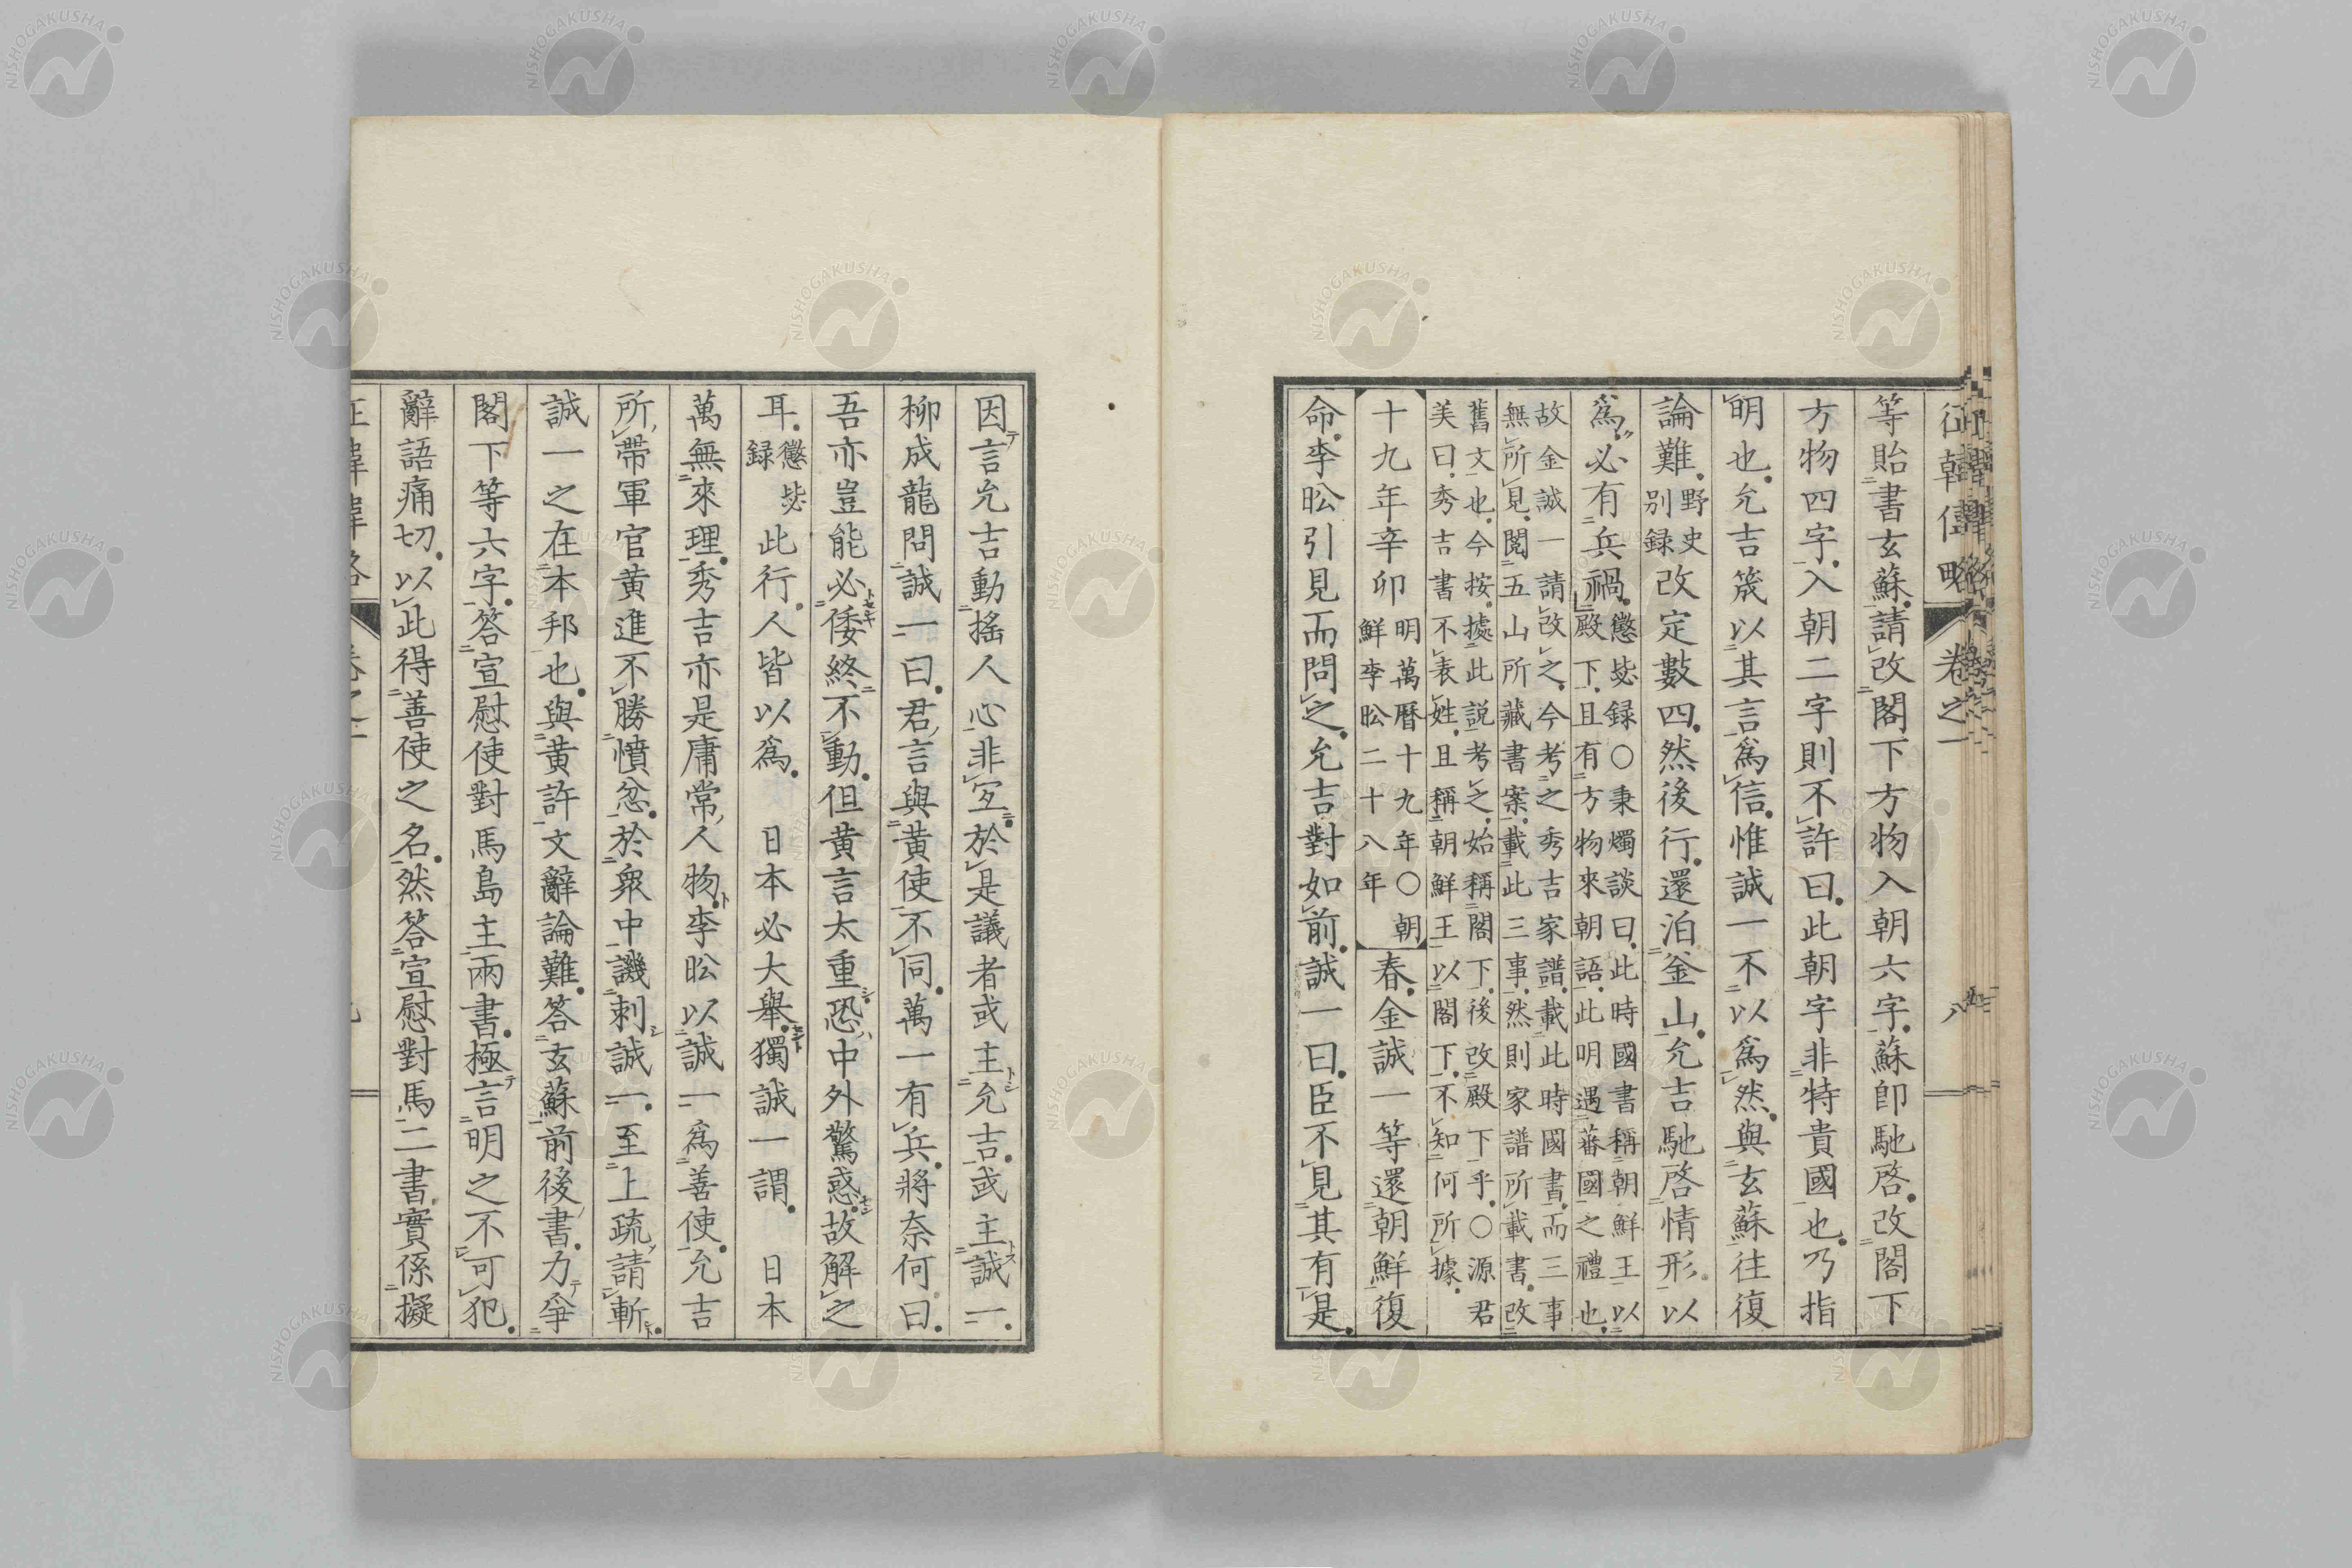 征韓偉略 卷之一 八
等貽書玄蘇請改閣下方物入朝六字蘇卽馳啓改閣下
方物四字入朝二字則不許曰此朝字非特貴國也乃指
明也允吉筬以其言爲信惟誠一不以爲然與玄蘇往復
論難野史別録改定數四然後行還泊釜山允吉馳啓情形以
爲必有兵禍懲毖録○秉燭談曰此時國書稱朝鮮王以
殿下且有方物來朝語此明遇蕃國之禮也
故金誠一請改之今考之秀吉家譜載此時國書而三事
無所見閲五山所藏書案載此三事然則家譜所載書改
舊文也今按據此説考之始稱閣下後改殿下乎○源君
美曰秀吉書不表姓且稱朝鮮王以閣下不知何所據
十九年辛卯明萬曆十九年○朝鮮李昖二十八年春金誠一等還朝鮮復
命李昖引見而問之允吉對如前誠一曰臣不見其有是
因言允吉動搖人心非宜於是議者或主允吉或主誠一
柳成龍問誠一曰君言與黃使不同萬一有兵將奈何曰
吾亦豈能必倭終不動但黃言太重恐中外驚惑故解之
耳懲毖録此行人皆以爲 日本必大舉獨誠一謂 日本
萬無來理秀吉亦是庸常人物李昖以誠一爲善使允吉
所帶軍官黃進不勝憤忿於衆中譏刺誠一至上疏請斬
誠一之在本邦也與黃許文辭論難答玄蘇前後書力爭
閣下等六字答宣慰使對馬島主兩書極言明之不可犯
辭語痛切以此得善使之名然答宣慰對馬二書實係擬
NISHOGAKUSHA